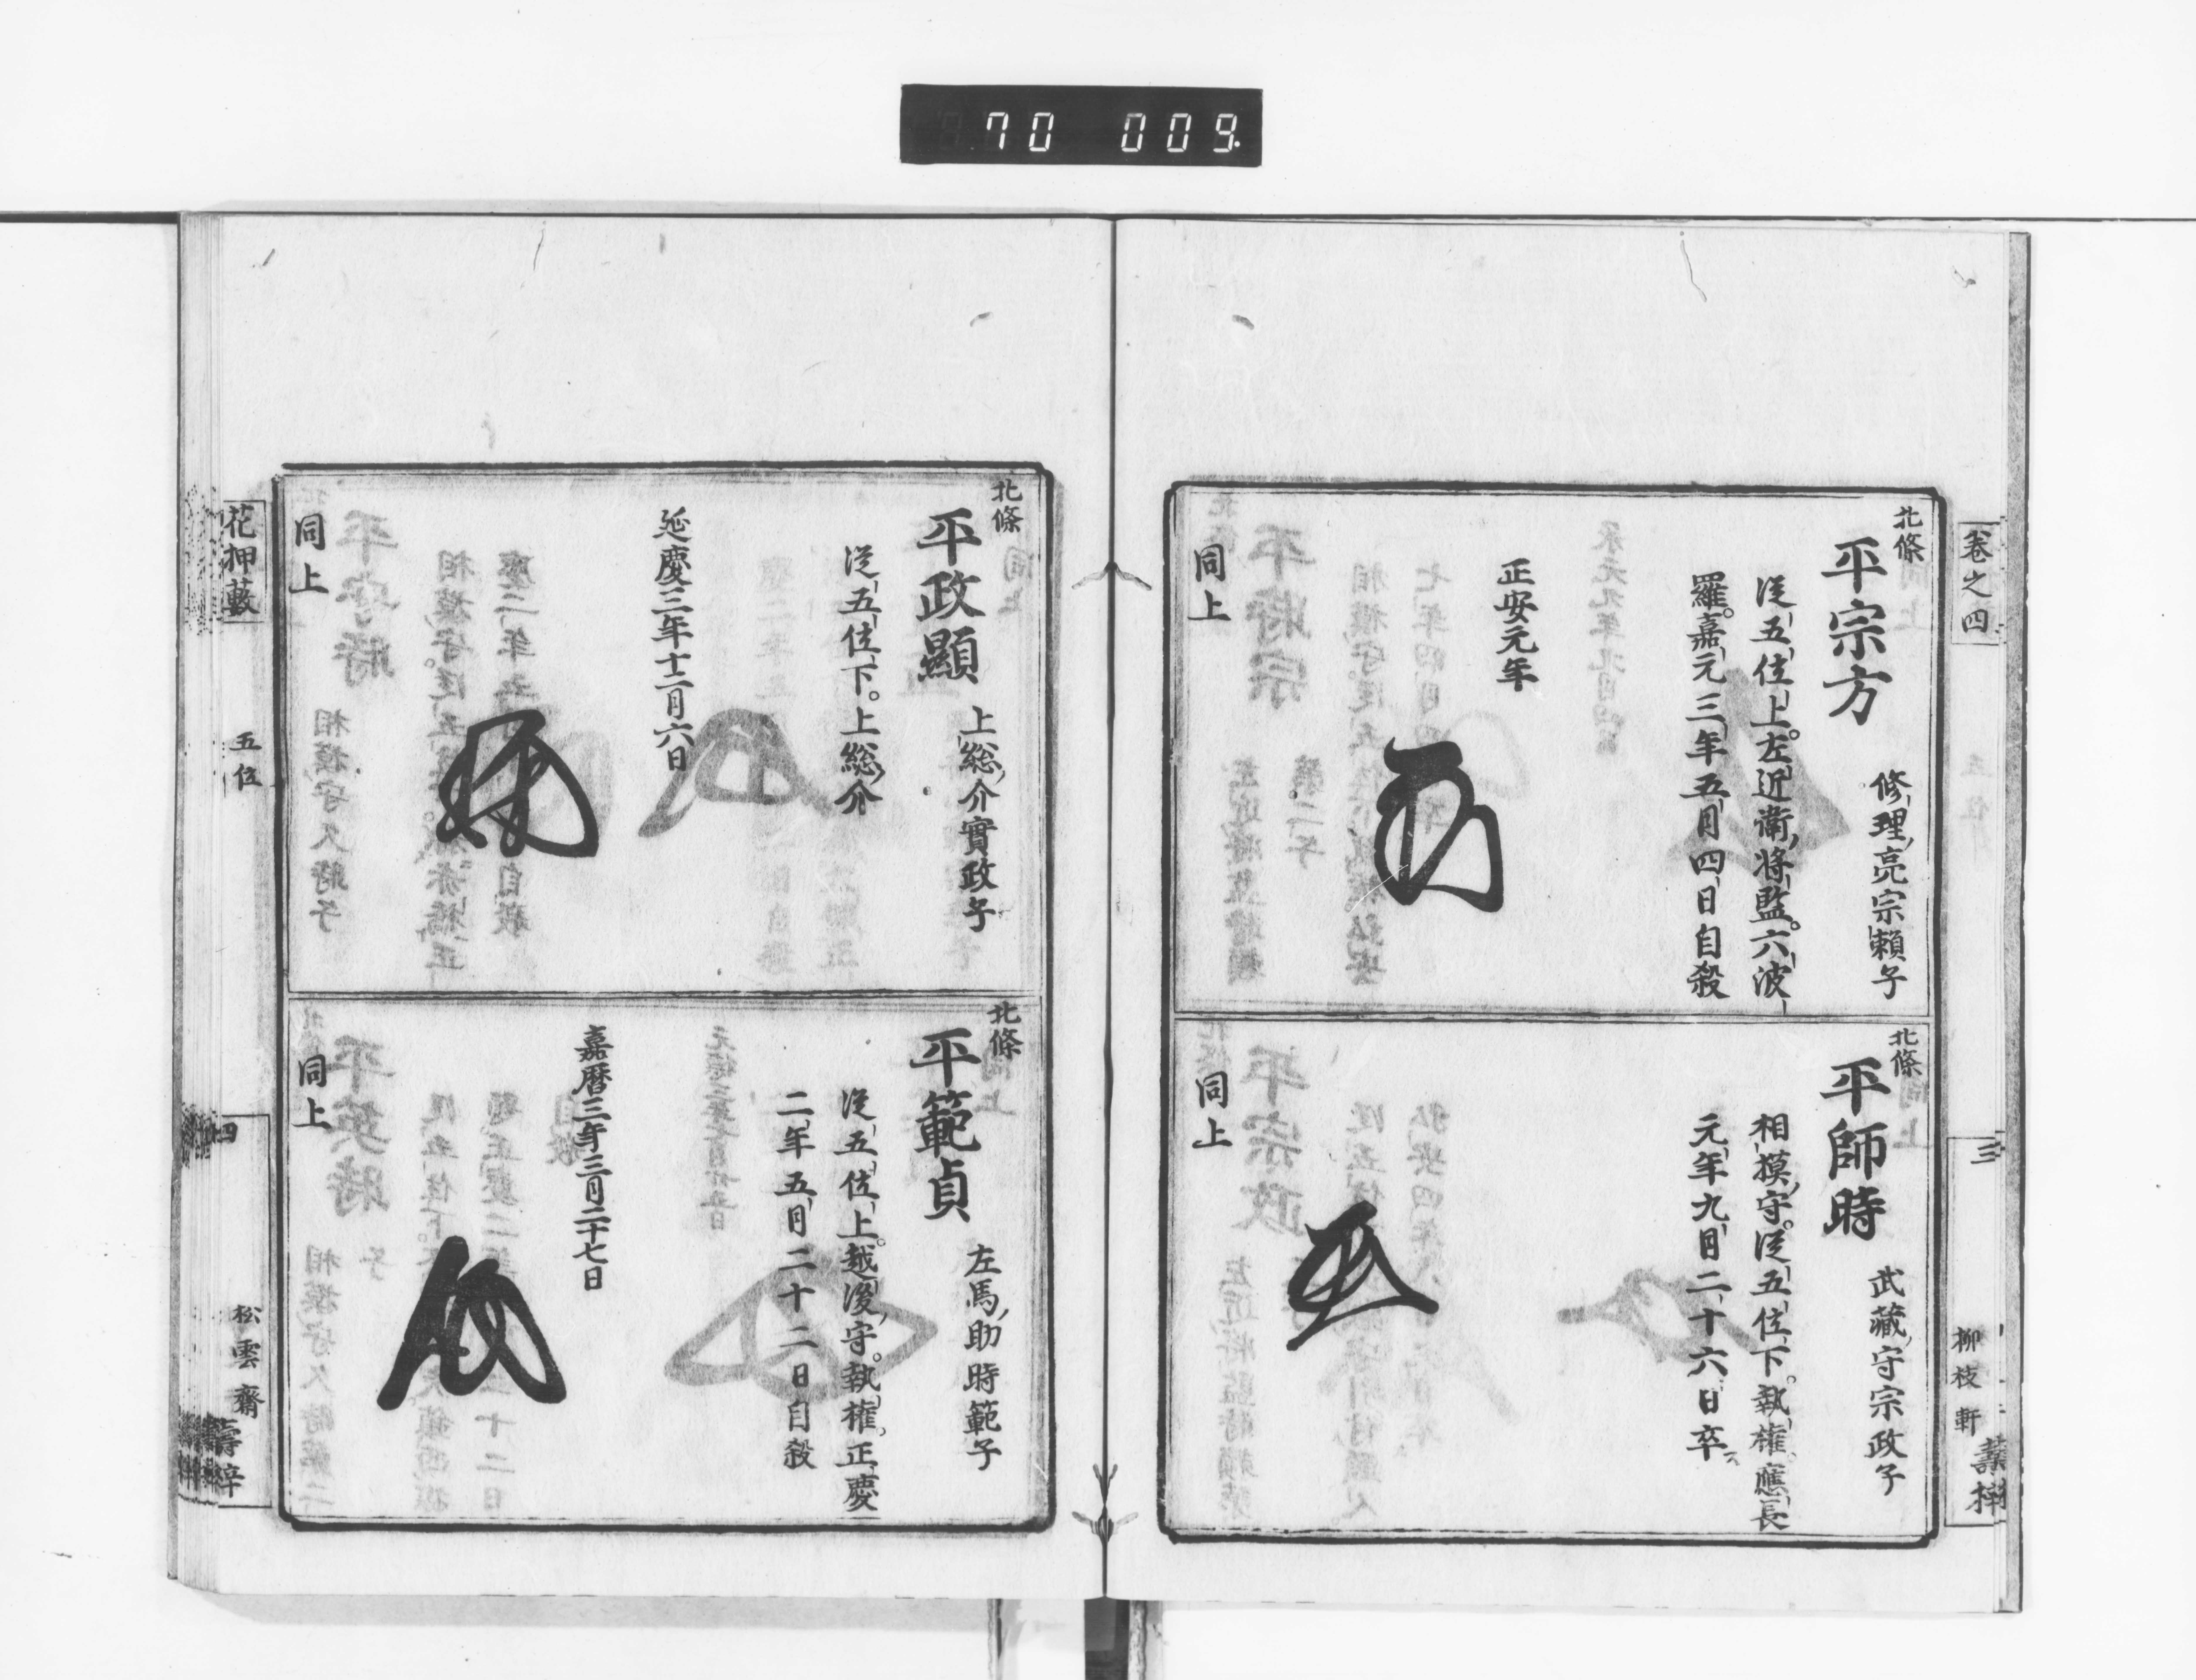 70 009
卷之四
三
柳枝軒
北條
平宗方
修理亮宗賴子
從五位上。左近衛將監。六波
羅。嘉元三年五月四日自殺
正安元年
同上
北條
平師時
武藏守宗政子
相摸守。從五位下。執權。應長
元年九月二十六日卒
同上
北條
平政顯
上總介實政子
從五位下。上總介
延慶三年十二月六日
同上
北條
平範貞
左馬助時範子
從五位上。越後守。執權。正慶
二年五月二十二日自殺
嘉暦三年三月二十七日
同上
花押藪
五位
四
松雲齋
壽梓